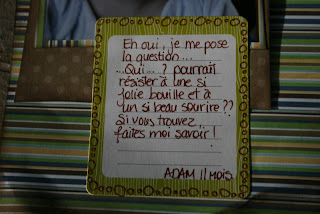 Eh oui, je me pose
la question...
...Qui...? pourrait
résister à une si
jolie bouille et à
un si beau sourire ??
Si vous trouvez
faites moi savoir !
ADAM 11 mois